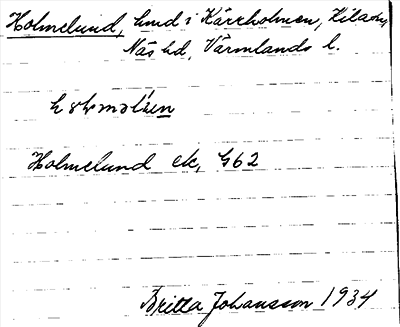 Holmelund, hmd i Kärrholmen, Kila sn,
Näs hd, Värmlands l.
Holmelund ek, G62
Britta Johansson 1934